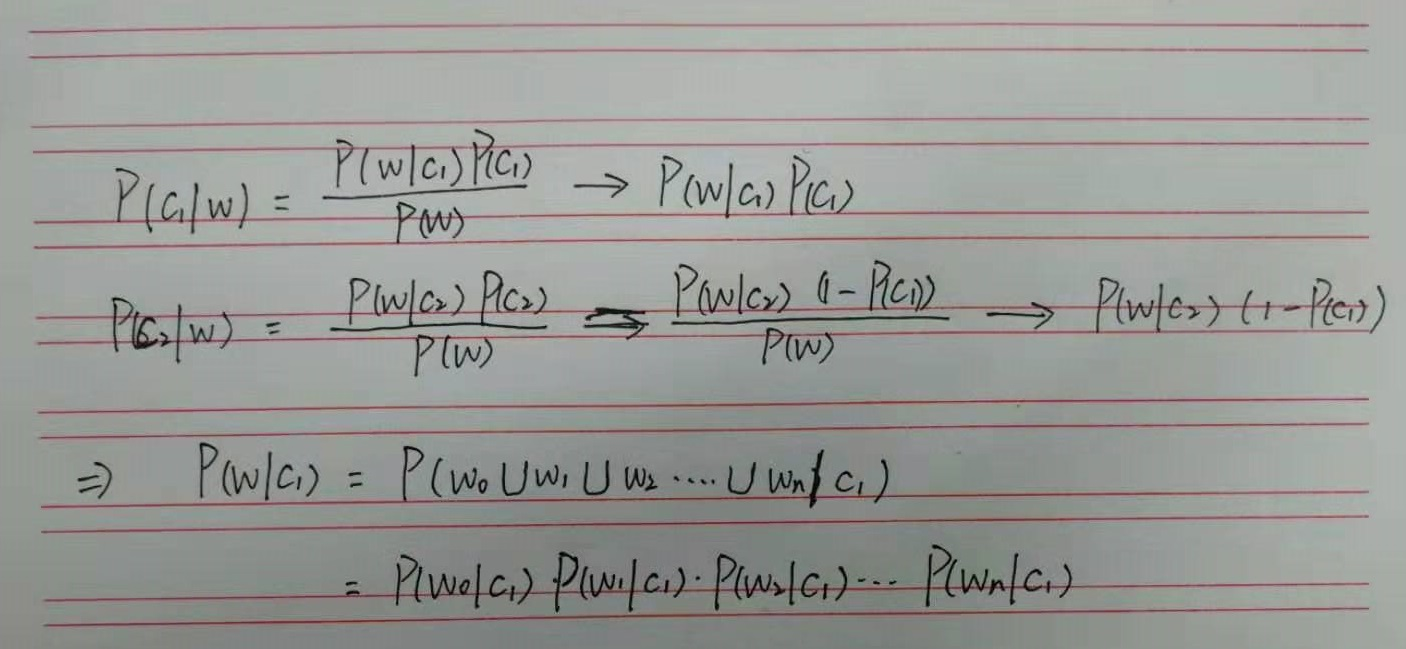 P(C₁|W) = P(W|C₁)P(C₁) / P(W) → P(W|C₁)P(C₁)
P(C₂|W) = P(W|C₂)P(C₂) / P(W) = P(W|C₂)(1-P(C₁)) / P(W) → P(W|C₂)(1-P(C₁))
⇒ P(W|C₁) = P(W₀∪W₁∪W₂....∪Wₙ|C₁)
= P(W₀|C₁)·P(W₁|C₁)·P(W₂|C₁)··· P(Wₙ|C₁)